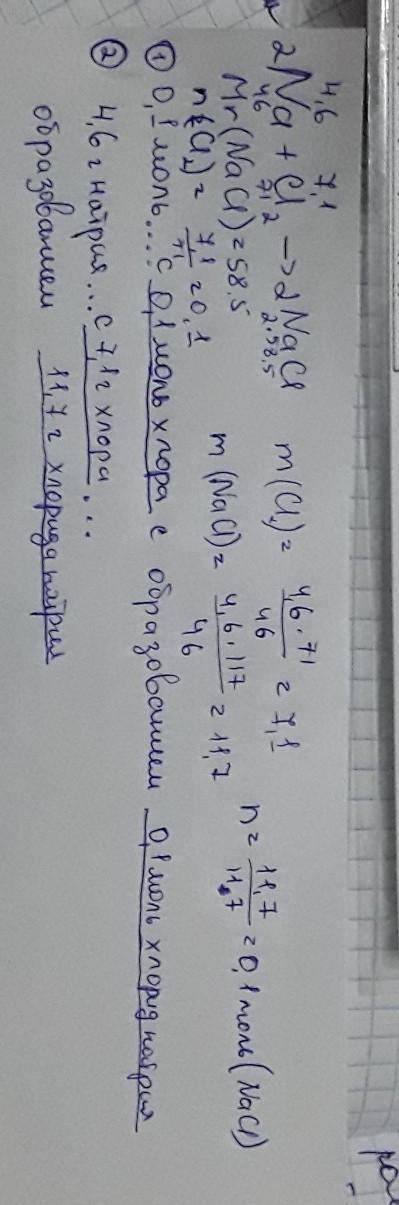 4,6 7,1
2Na + Cl2 → 2NaCl
46 71 2·58,5
m(Cl2) = 4,6·71 / 46 = 7,1
Mr(NaCl) = 58,5
n(Cl2) = 7,1 / 71 = 0,1
m(NaCl) = 4,6·117 / 46 = 11,7
n = 11,7 / 11,7 = 0,1 моль (NaCl)
① 0,1 моль.... с 0,1 моль хлора с образованием 0,1 моль хлорид натрия
② 4,6 г натрия... с 7,1 г хлора...
образованием 11,7 г хлорида натрия